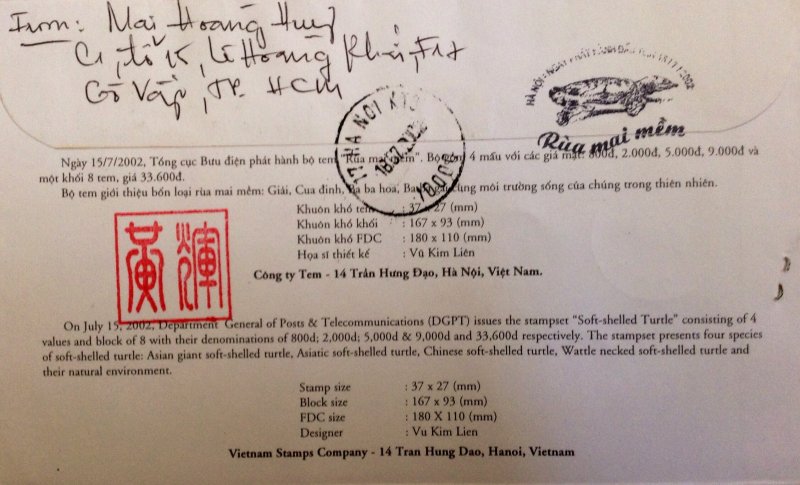 From: Mai Hoàng Huy
Lê Hoàng
Gò Vấp, TP. HCM
HÀ NỘI - NGÀY PHÁT HÀNH ĐẦU TIÊN 15/7/2002
Rùa mai mềm
HA NOI
Ngày 15/7/2002, Tổng cục Bưu điện phát hành bộ tem "Rùa mai mềm". Bộ gồm 4 mẫu với các giá mặt: 800đ, 2.000đ, 5.000đ, 9.000đ và
một khối 8 tem, giá 33.600đ.
Bộ tem giới thiệu bốn loại rùa mai mềm: Giải, Cua đinh, Ba ba hoa, Ba ba gai cùng môi trường sống của chúng trong thiên nhiên.
Khuôn khổ tem : 37 x 27 (mm)
Khuôn khổ khối : 167 x 93 (mm)
Khuôn khổ FDC : 180 x 110 (mm)
Họa sĩ thiết kế : Vũ Kim Liên
Công ty Tem - 14 Trần Hưng Đạo, Hà Nội, Việt Nam.
黃輝
On July 15, 2002, Department General of Posts & Telecommunications (DGPT) issues the stampset "Soft-shelled Turtle" consisting of 4
values and block of 8 with their denominations of 800d; 2,000d; 5,000d & 9,000d and 33,600d respectively. The stampset presents four species
of soft-shelled turtle: Asian giant soft-shelled turtle, Asiatic soft-shelled turtle, Chinese soft-shelled turtle, Wattle necked soft-shelled turtle and
their natural environment.
Stamp size : 37 x 27 (mm)
Block size : 167 x 93 (mm)
FDC size : 180 X 110 (mm)
Designer : Vu Kim Lien
Vietnam Stamps Company - 14 Tran Hung Dao, Hanoi, Vietnam